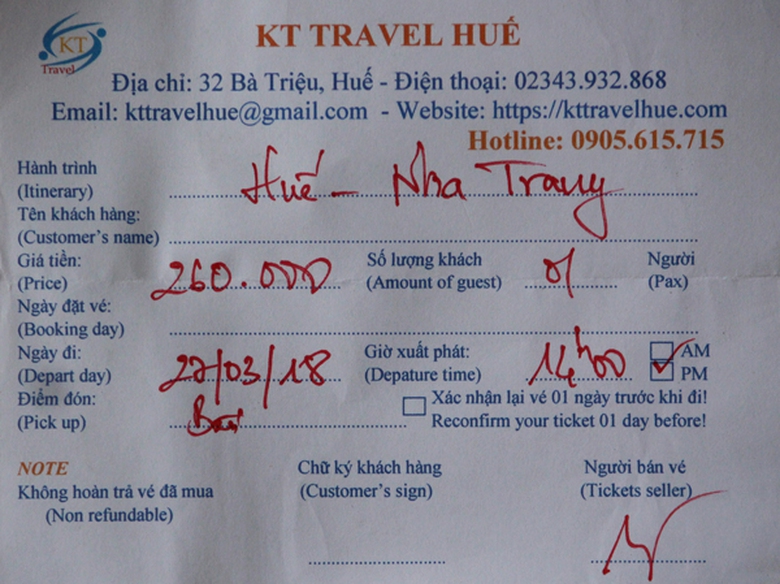 KT
Travel
KT TRAVEL HUẾ
Địa chỉ: 32 Bà Triệu, Huế - Điện thoại: 02343.932.868
Email: kttravelhue@gmail.com - Website: https://kttravelhue.com
Hotline: 0905.615.715
Hành trình
(Itinerary) Huế - Nha Trang
Tên khách hàng:
(Customer's name)
Giá tiền: Số lượng khách Người
(Price) 260.000 (Amount of guest) 01 (Pax)
Ngày đặt vé:
(Booking day)
Ngày đi: Giờ xuất phát: AM
(Depart day) 27/03/18 (Depature time) 14h00 PM
Điểm đón: Xác nhận lại vé 01 ngày trước khi đi!
(Pick up) Reconfirm your ticket 01 day before!
NOTE Chữ ký khách hàng Người bán vé
Không hoàn trả vé đã mua (Customer's sign) (Tickets seller)
(Non refundable)